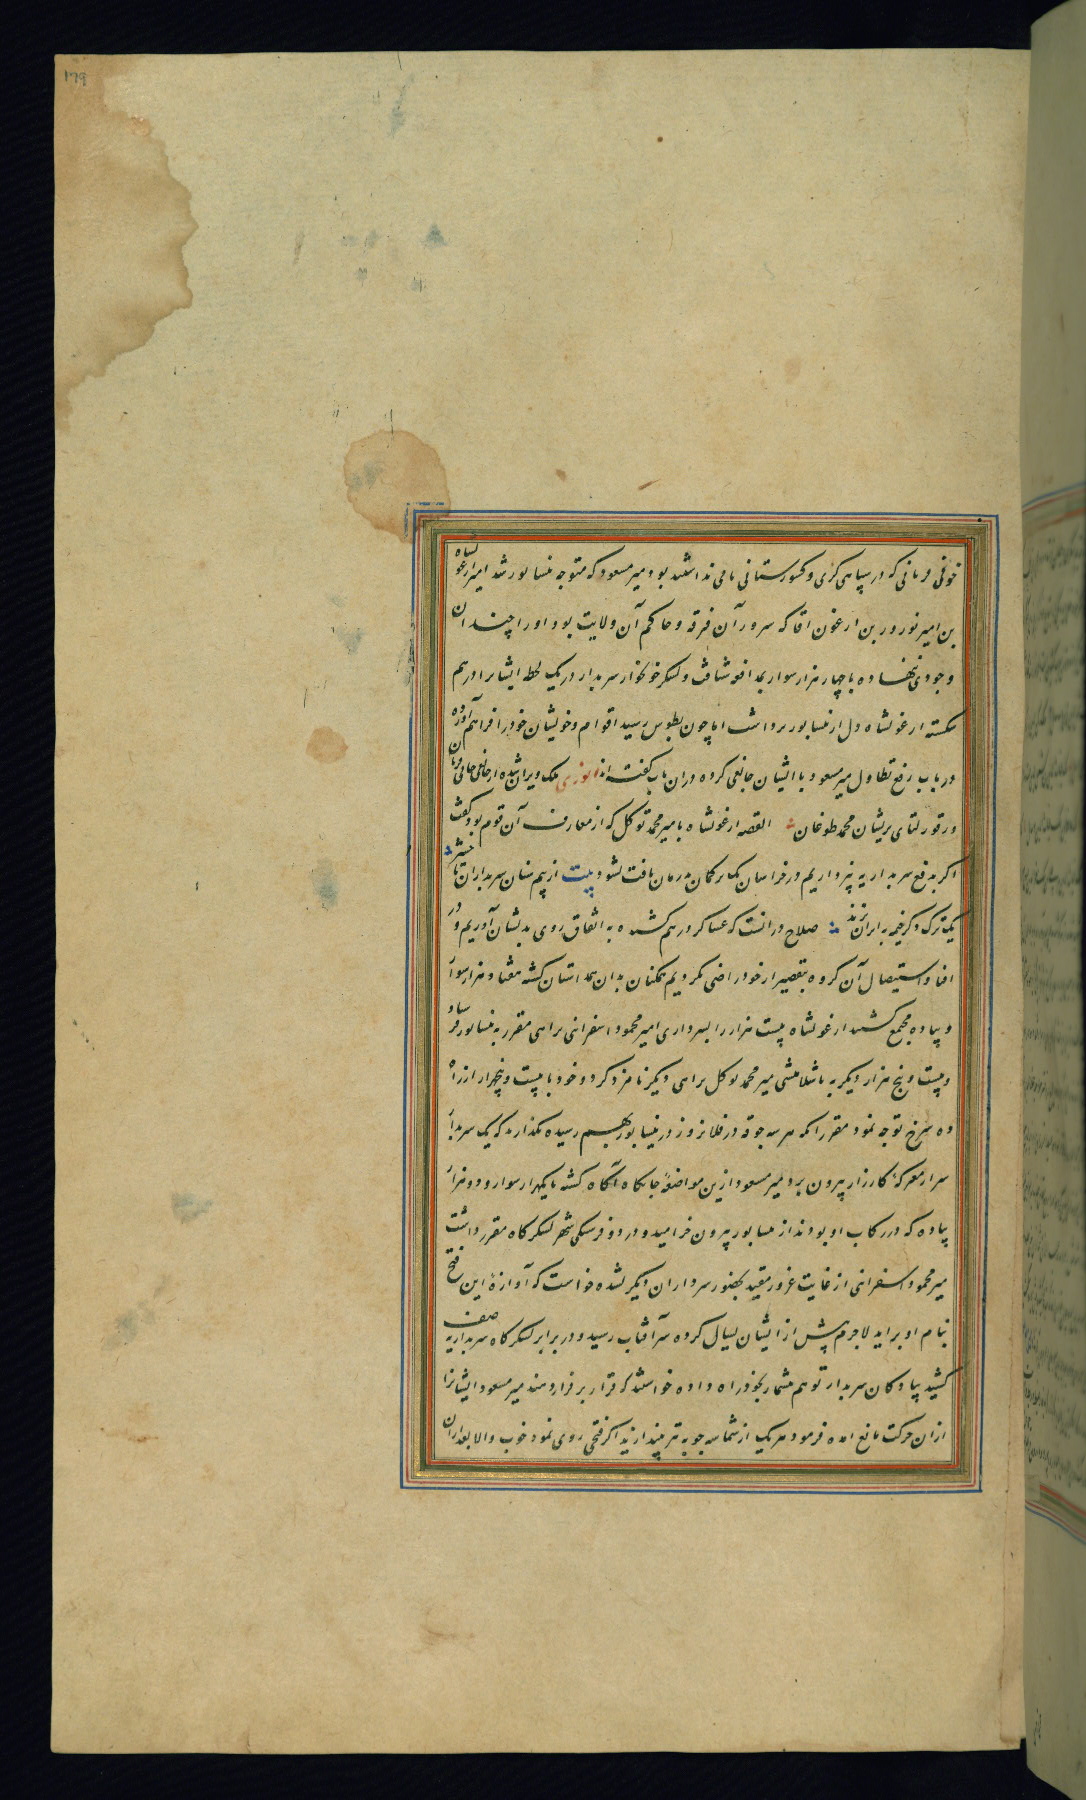 ۱۷۹
خوفی قربانی که در سپاهی کری و کشورستانی مامی نداشتند بود و میر مسعود که متوجه نیسابور شد امیر ارغونشاه
بن امیر نوروز بن ارغون اقا که سرور آن فرقه و حاکم آن ولایت بود او را چندان
وجودی ننهاده با چهار هزار سوار بمدافعه شتافت و لشکر خونخوار سربدار در یک لحظه ایشانرا درهم
شکسته ارغونشاه دل از نیسابور برداشت اما چون بطوس رسید اقوام و خویشان خود را فراهم آورده
در باب رفع تطاول میر مسعود با ایشان جانقی کرده در ان باب کفته اند انوری ملک ویران شده از جانقی جانی قربان
و ز قورلتای پریشان محمد طوغان القصه ارغونشاه با میر محمد توکل که از معارف آن قوم بود کفت
اکر بدفع سربداریه نپردازیم در خراسان یک ترکمان در مان یافت نشود بیت از بیم سنان سربداران تا حشر
یک ترک دکر خیمه به ایران نزند صلاح در انست که عساکر در هم کشیده به اتفاق روی بدیشان آوریم و در
افنا و استیصال آن کروه بتقصیر از خود راضی نکردیم همکنان بدان همداستان کشته هفتاد هزار سوار
و پیاده مجتمع کشتند ارغونشاه بیست هزار را بسرداری امیر محمود اسفراینی براهی مقرر به نیسابور فرستاد و
و بیست و پنج هزار دیکر به باشلامیشی میر محمد توکل براهی دیکر نامزد کرد و خود با بیست و پنجهزار از راه
ده سرخ توجه نمود مقرر انکه هر سه جوقه در فلان روز در نیسابور بهم رسیده نکذارند که یک سربدار
سر از معرکهٔ کارزار بیرون برد و میر مسعود ازین مواضعهٔ جانکاه آکاه کشته با یکهزار سوار و دو هزار
پیاده که در رکاب او بودند از نیسابور بیرون خرامید و در دو فرسنکی شهر لشکرکاه مقرر داشت
میر محمود اسفراینی از غایت غرور مقید بحضور سرداران دیکر نشده خواست که آوازهٔ این فتح
بنام او براید لاجرم پیش از ایشان ایسال کرده سرآفتاب رسید و در برابر لشکرکاه سربداریه صف
کشید پیادکان سربدار توهم بیشمار بخود راه داده خواستند که قرار بر فرار دهند میر مسعود ایشانرا
از ان حرکت مانع امده فرمود هر یک از شما سه چوبه تیر بیندازید اکر فتحی روی نمود خوب والا بعد ازان